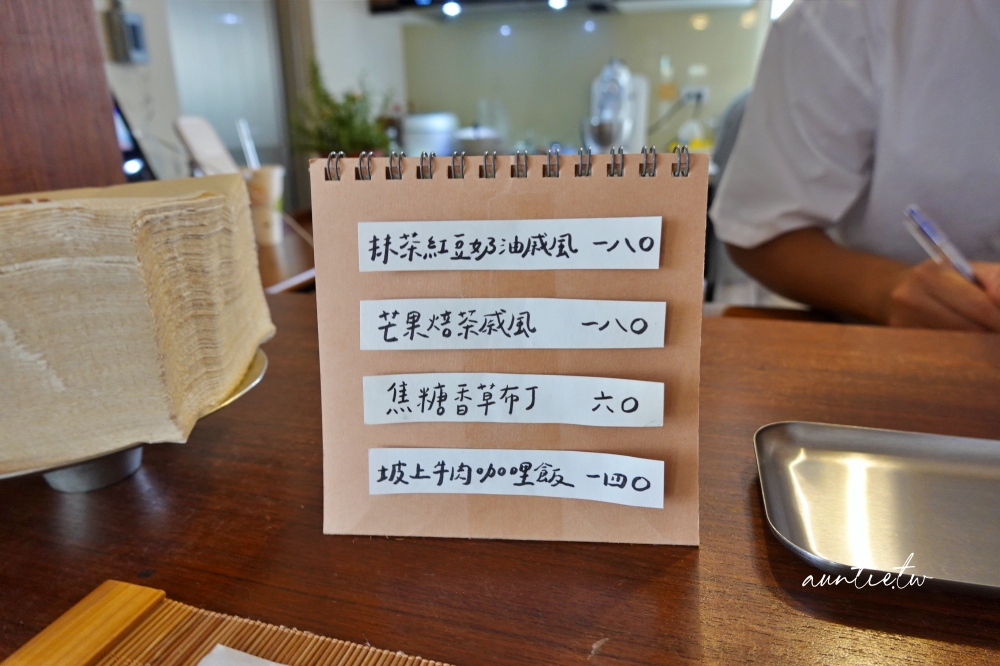 抹茶紅豆奶油戚風 一八〇
芒果焙茶戚風 一八〇
焦糖香草布丁 六〇
坡上牛肉咖哩飯 一四〇
auntie.tw